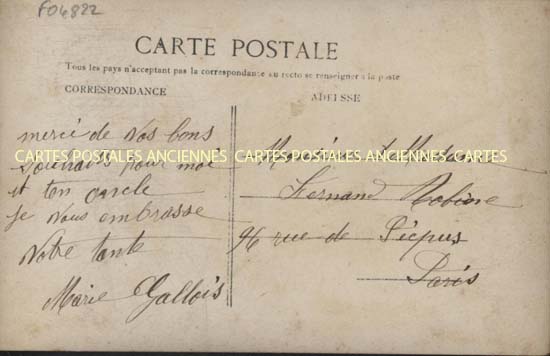 F04822
CARTE POSTALE
Tous les pays n'acceptant pas la correspondance au recto se renseigner à la poste
CORRESPONDANCE
ADRESSE
merci de vos bons
souhaits pour moi
et ton oncle
je vous embrasse
Votre tante
Marie Gallois
CARTES POSTALES ANCIENNES CARTES POSTALES ANCIENNES CARTES
Monsieur
Fernand
96 rue de Picpus
Paris